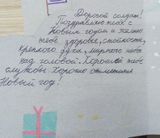 Дорогой солдат!
Поздравляю тебя с
Новым годом и желаю
тебе здоровье, стойкости,
крепкого духа, мирного неба
над головой. Хорошей тебе
службы. Хорошо отметить
Новый год!